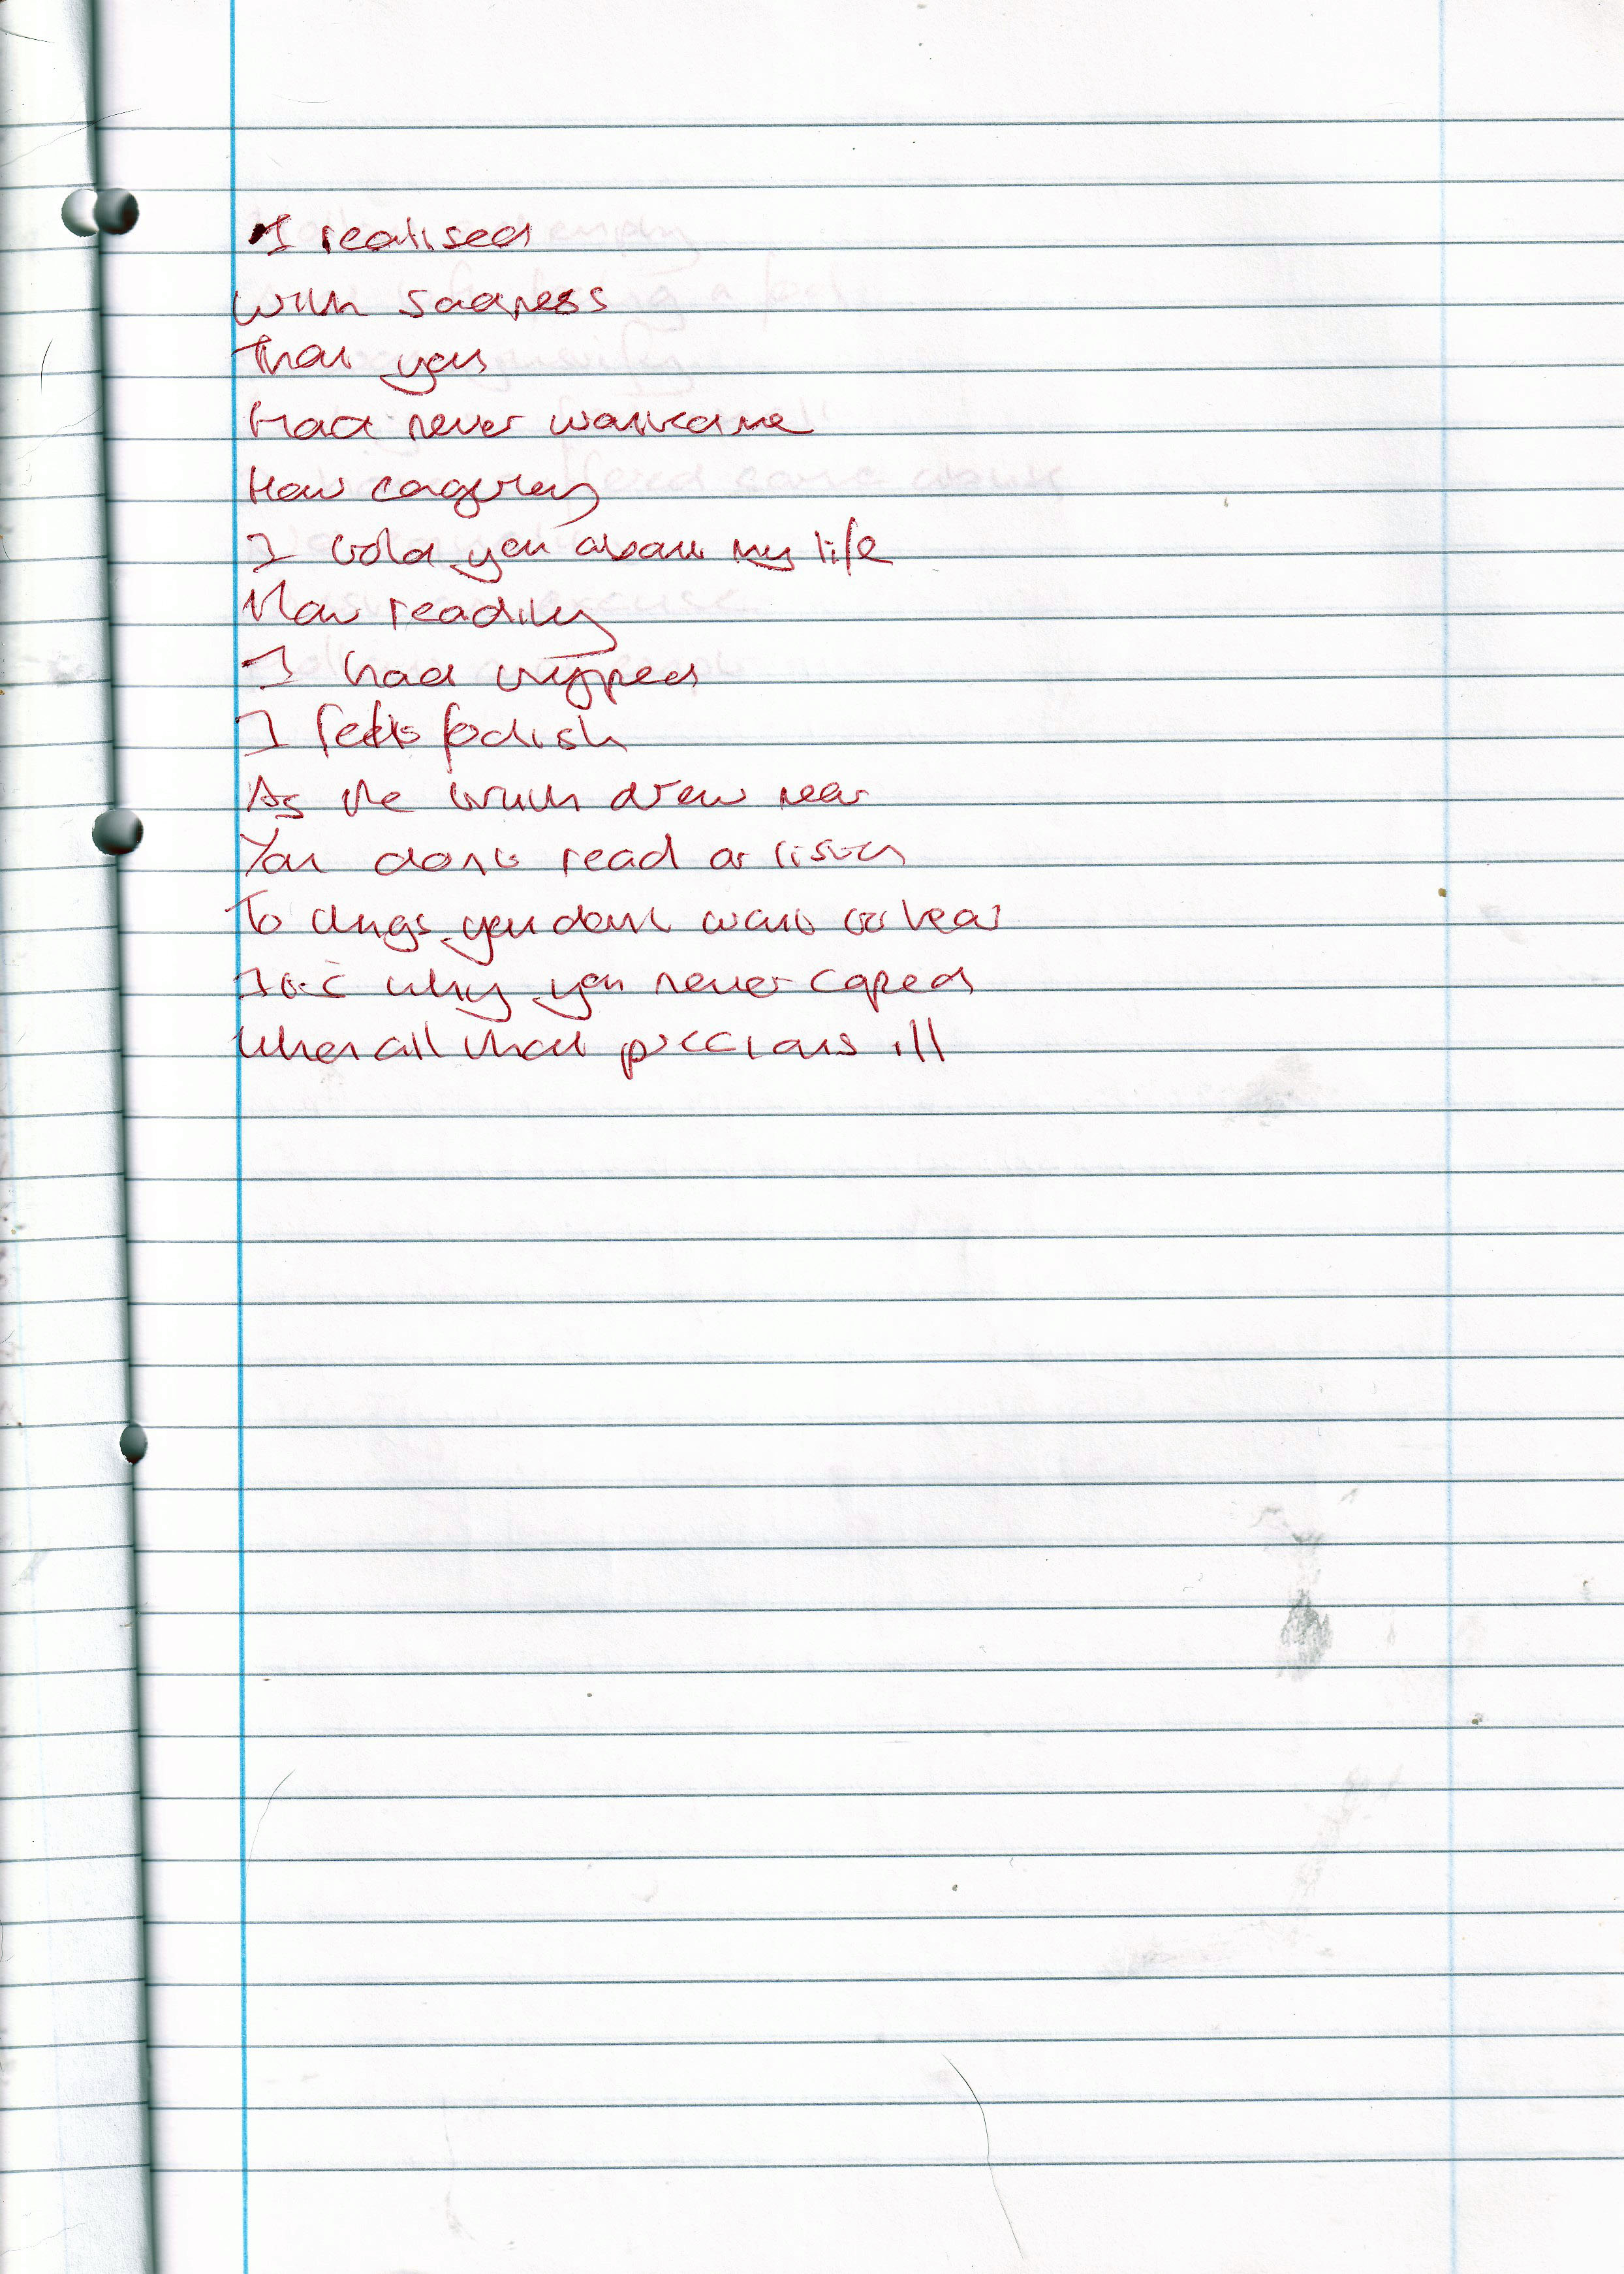 I realised
With sadness
That you
Had never wanted me
How eagerly
I told you about my life
How readily
I had tripped
I felt foolish
As the truth drew near
You don't read or listen
To things you dont want to hear
It's why you never coped
When all that precious ill